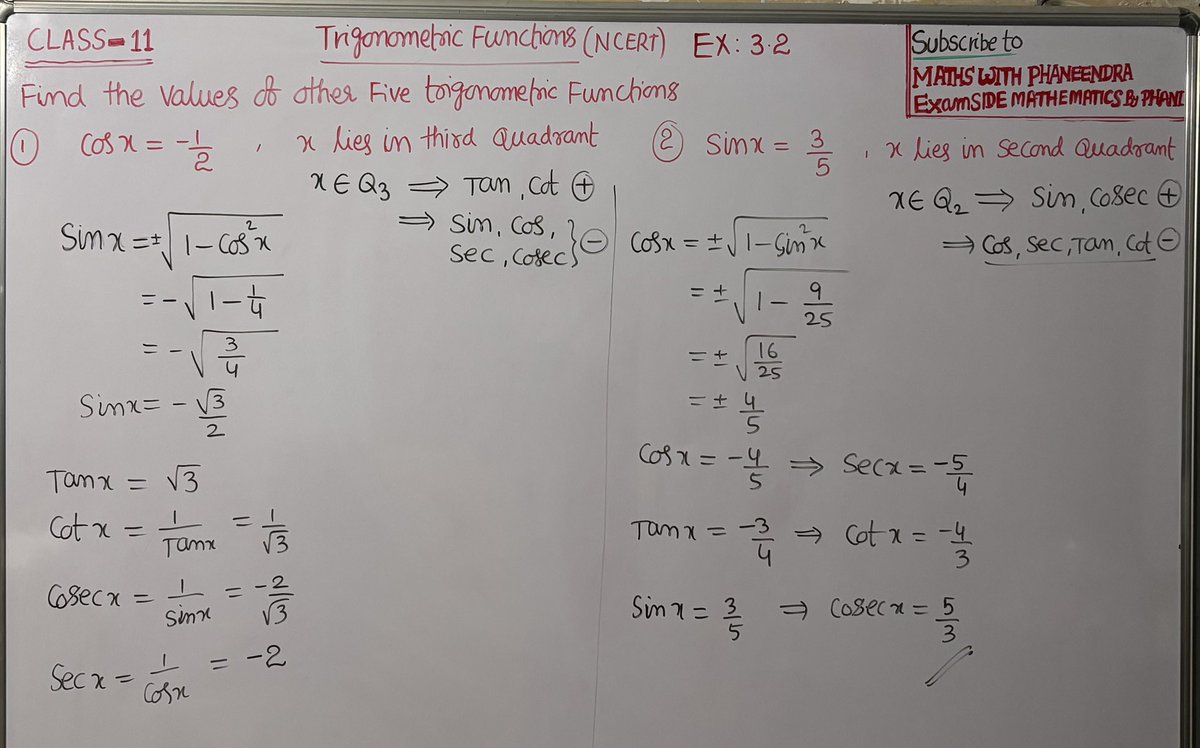 CLASS-11
Trigonometric Functions (NCERT) EX: 3.2
Subscribe to
MATHS WITH PHANEENDRA
ExamSIDE MATHEMATICS By PHANI
Find the values of other Five trigonometric Functions
① Cos x = -1/2 , x lies in third Quadrant
x ∈ Q3 ⟹ Tan, Cot ⊕
⟹ Sin, Cos, Sec, Cosec } ⊖
Sin x = ±√(1 - Cos²x)
= -√(1 - 1/4)
= -√(3/4)
Sin x = -√3/2
Tan x = √3
Cot x = 1/Tan x = 1/√3
Cosec x = 1/Sin x = -2/√3
Sec x = 1/Cos x = -2
② Sin x = 3/5 , x lies in Second Quadrant
x ∈ Q2 ⟹ Sin, Cosec ⊕
⟹ Cos, Sec, Tan, Cot ⊖
Cos x = ±√(1 - Sin²x)
= ±√(1 - 9/25)
= ±√(16/25)
= ± 4/5
Cos x = -4/5 ⟹ Sec x = -5/4
Tan x = -3/4 ⟹ Cot x = -4/3
Sin x = 3/5 ⟹ Cosec x = 5/3